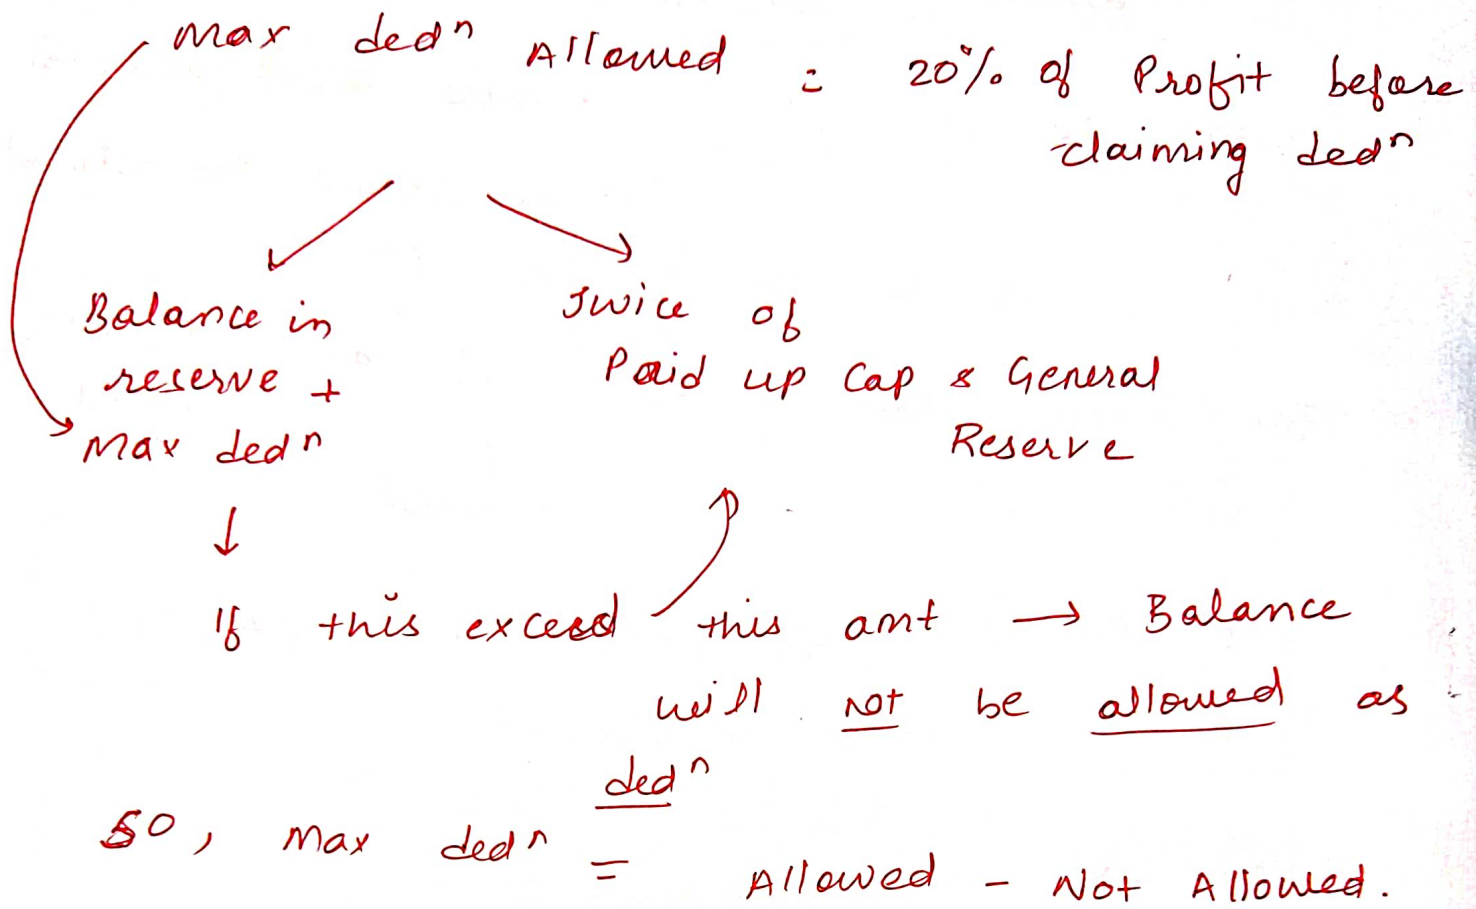 Max dedⁿ Allowed = 20% of Profit before
claiming dedⁿ
Balance in
reserve +
Max dedⁿ
Twice of
Paid up Cap & General
Reserve
If this exceed this amt → Balance
will not be allowed as
dedⁿ
So, Max dedⁿ = Allowed - Not Allowed.